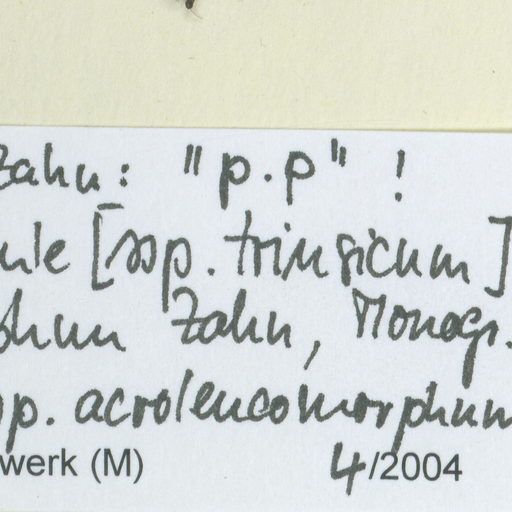 Zahn: "p.p" !
ule [ssp. trinsicum]
phum Zahn, Monogr.
sp. acroleucomorphum
werk (M) 4/2004